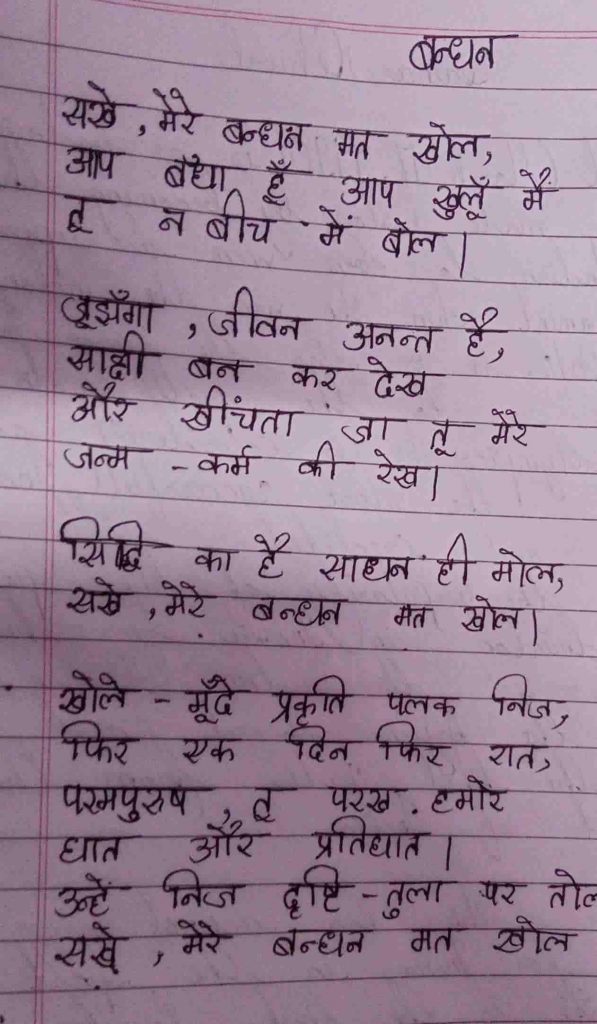 बन्धन
सखे, मेरे बन्धन मत खोल,
आप बंधा हूँ आप खुलूँ मैं
तू न बीच में बोल।
जूझूँगा, जीवन अनन्त है,
साक्षी बन कर देख
और खींचता जा तू मेरे
जन्म - कर्म की रेख।
सिद्धि का है साधन ही मोल,
सखे, मेरे बन्धन मत खोल।
खोले - मूँदे प्रकृति पलक निज,
फिर एक दिन फिर रात,
परमपुरुष, तू परख हमारे
घात और प्रतिघात।
उन्हें निज दृष्टि - तुला पर तोल
सखे, मेरे बन्धन मत खोल